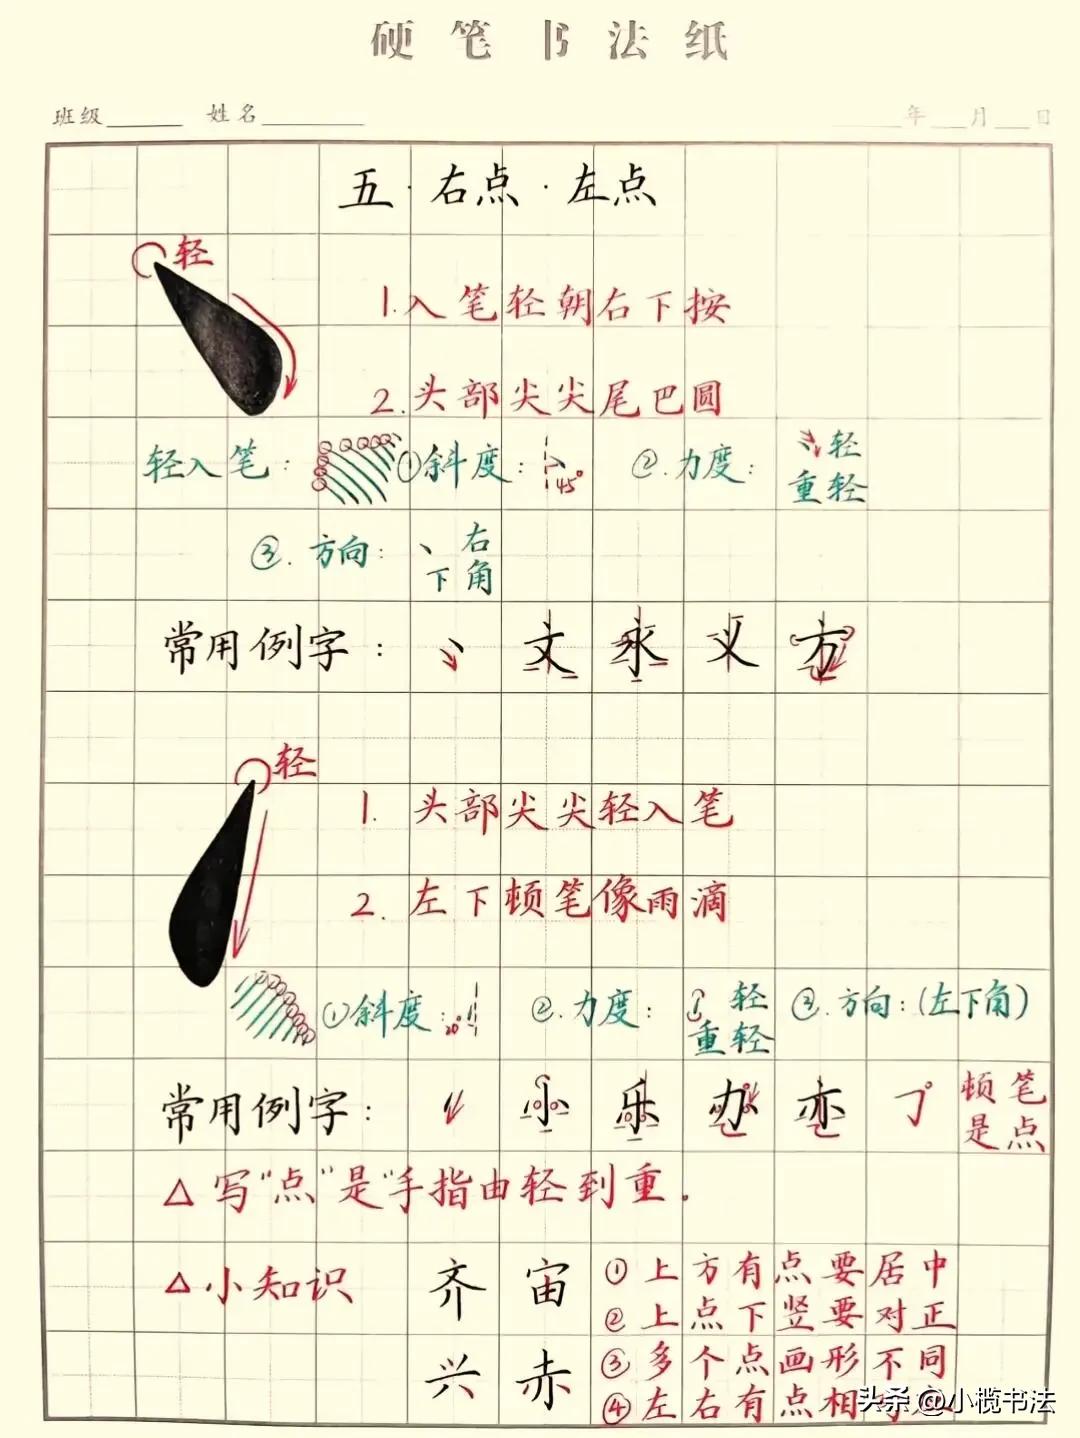 硬笔书法纸
班级 姓名 年 月 日
五·右点·左点
轻
1.入笔轻朝右下按
2.头部尖尖尾巴圆
轻入笔: ①斜度: 45° ②.力度: 轻
重轻
③.方向: 丶 右
下角
常用例字: 丶 文 永 义 方
轻
1. 头部尖尖轻入笔
2. 左下顿笔像雨滴
①斜度: 20° ②.力度: 轻
重轻
③.方向:(左下角)
常用例字: 小 乐 办 亦 顿笔
是点
△写“点”是“手指由轻到重.
△小知识 齐 宙 ①上方有点要居中
②上点下竖要对正
兴 赤 ③多个点画形不同
④左右有点相
头条 @小榄书法